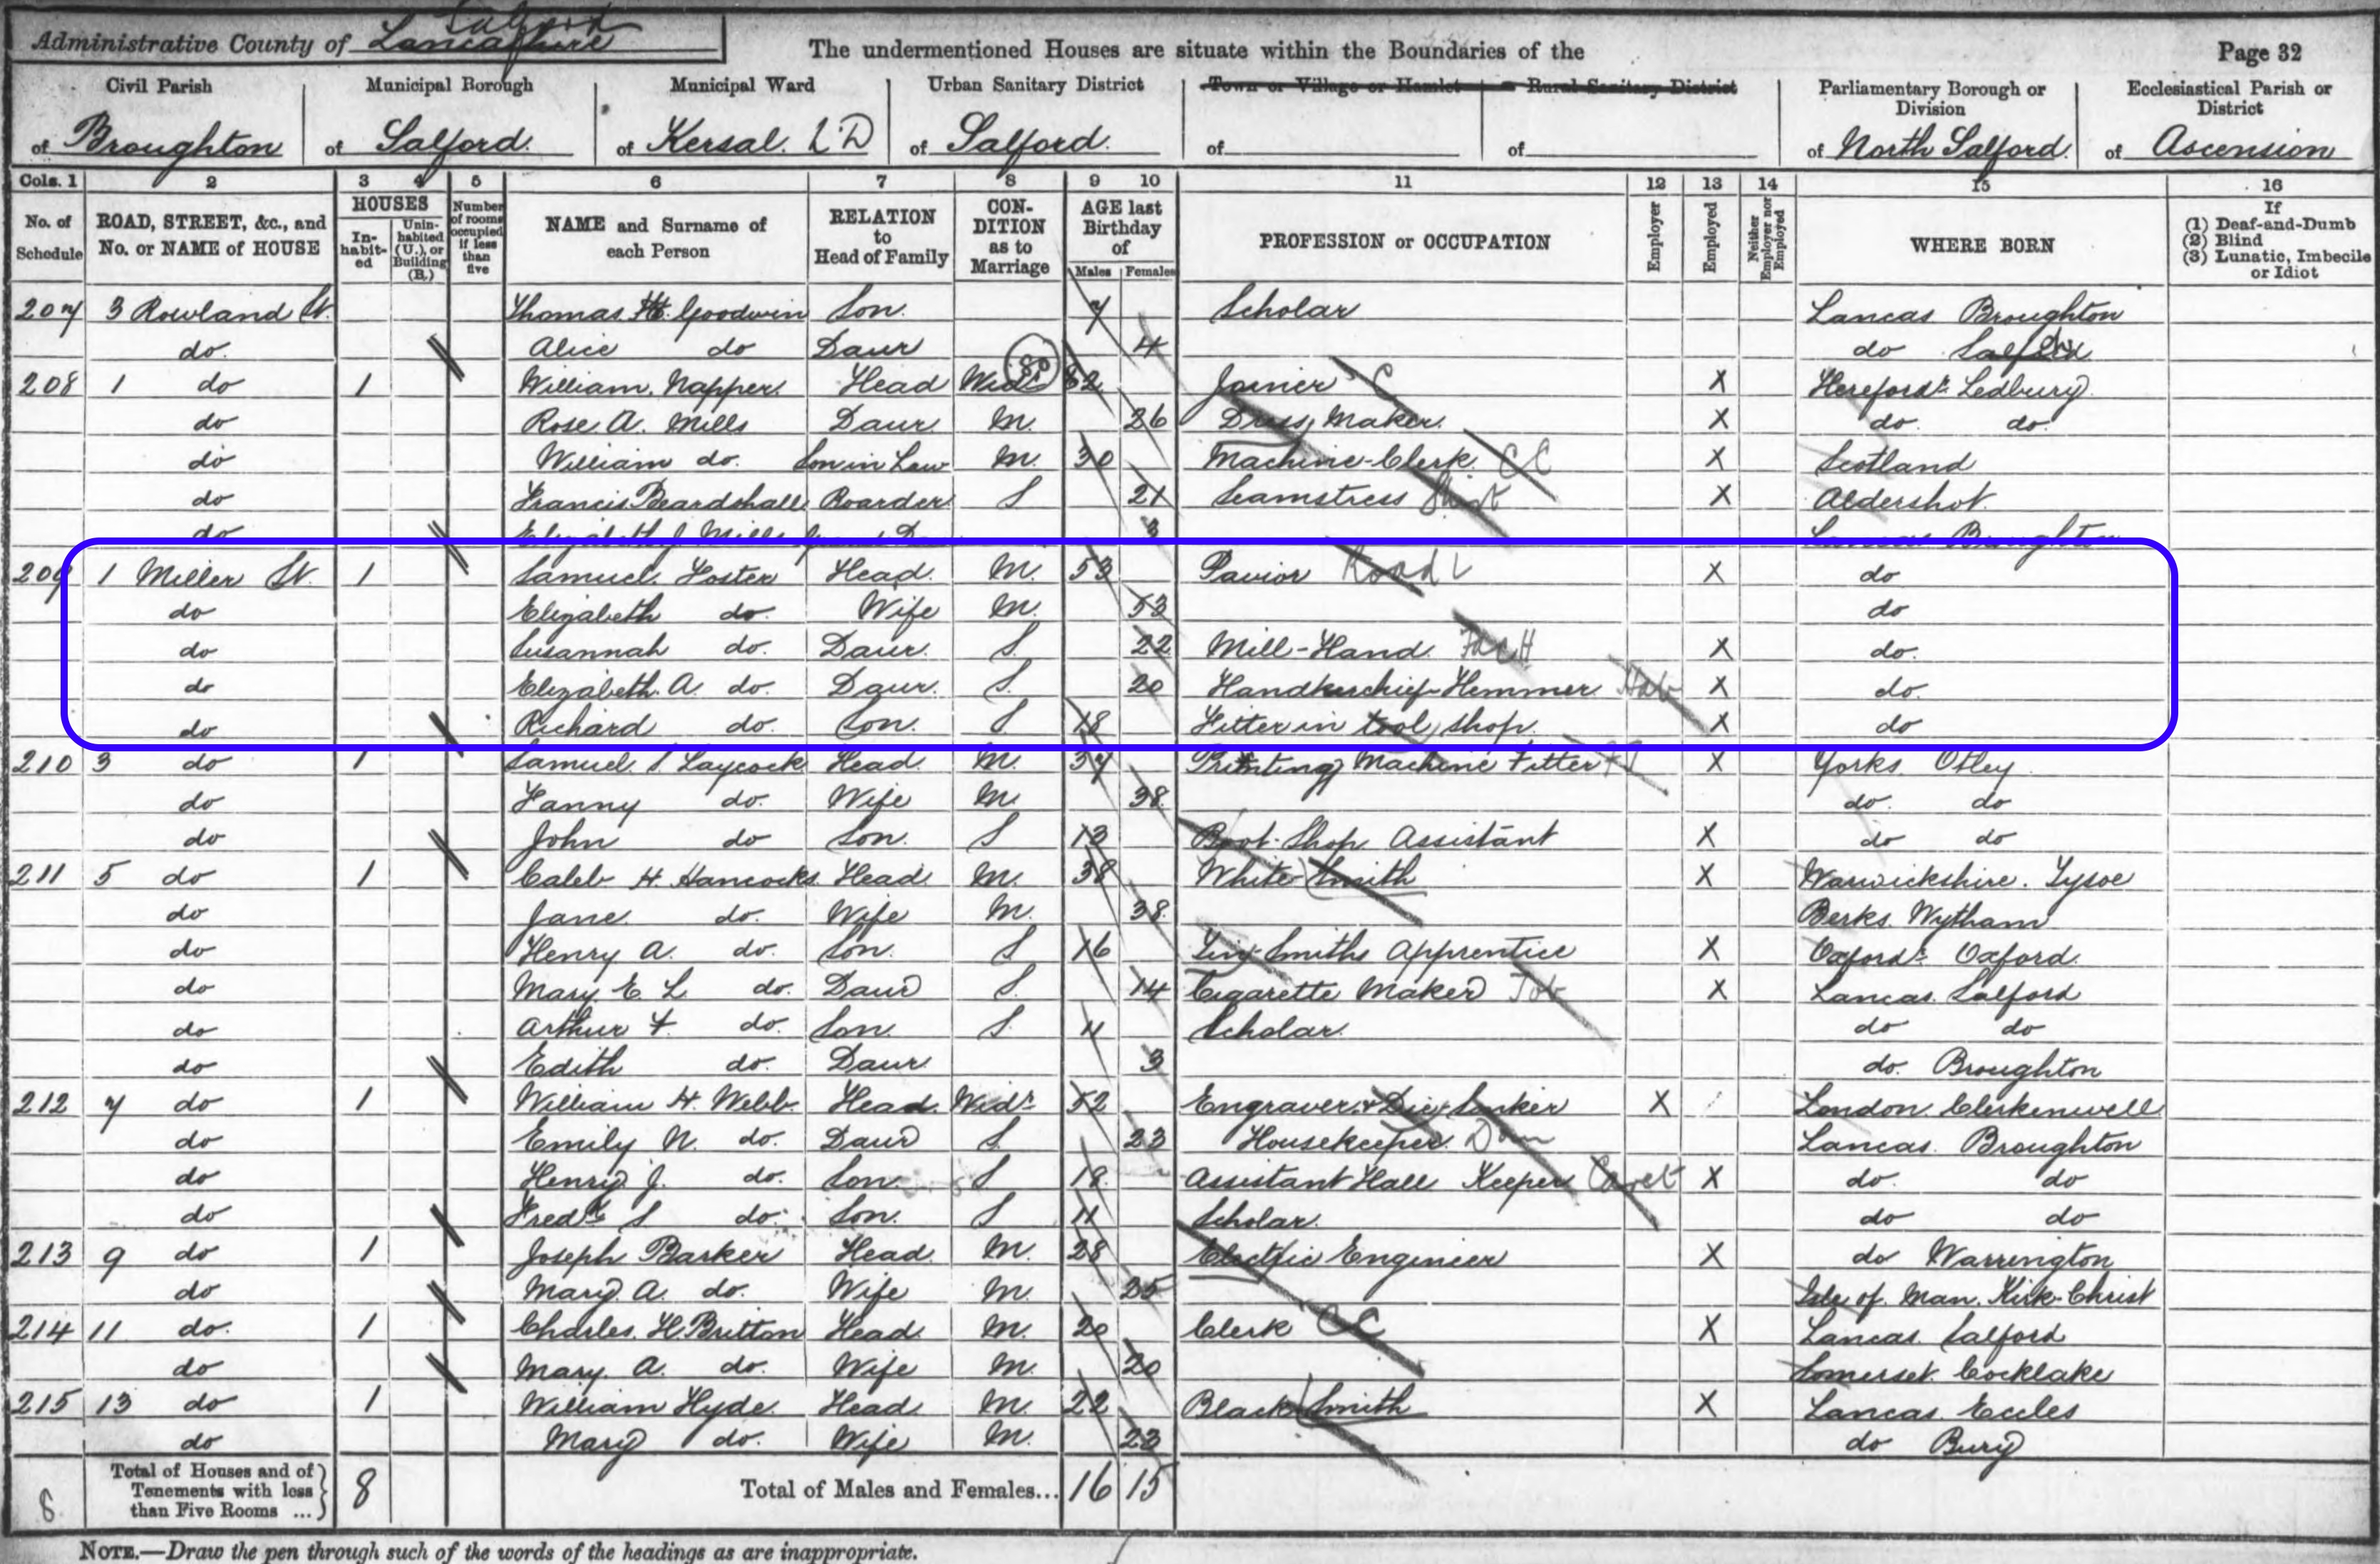 Administrative County of Lancashire Salford
The undermentioned Houses are situate within the Boundaries of the
Page 32
Civil Parish of Broughton
Municipal Borough of Salford.
Municipal Ward of Kersal. L D
Urban Sanitary District of Salford.
Town or Village or Hamlet of
Rural Sanitary District of
Parliamentary Borough or Division of North Salford.
Ecclesiastical Parish or District of Ascension
Cols. 1 2 3 4 5 6 7 8 9 10 11 12 13 14 15 16
No. of Schedule
ROAD, STREET, &c., and No. or NAME of HOUSE
HOUSES
In-habit-ed
Unin-habited (U.), or Building (B.)
Number of rooms occupied if less than five
NAME and Surname of each Person
RELATION to Head of Family
CON-DITION as to Marriage
AGE last Birthday of
Males Females
PROFESSION or OCCUPATION
Employer
Employed
Neither Employer nor Employed
WHERE BORN
If
(1) Deaf-and-Dumb
(2) Blind
(3) Lunatic, Imbecile or Idiot
207 3 Rowland St. Thomas H. Goodwin Son. 7 Scholar Lancas Broughton
do. Alice do Daur 4 do Salford
208 1 do 1 William. Napper. Head Widr 80 62 Joiner C X Herefords Ledbury.
do Rose A. Mills Daur M. 26 Dress Maker. X do. do.
do William do. Son in Law M. 30 Machine-Clerk. CC X Scotland
do Francis Beardshall Boarder S 21 Seamstress Shirt X Aldershot.
do Elizabeth J. Mills Grand Daur 3 Lancas Broughton
209 1 Miller St. 1 Samuel Foster Head. M. 53 Pavior Road L X do
do Elizabeth do. Wife M. 53 do
do Susannah do. Daur. S. 22 Mill-Hand. Fac H X do.
do Elizabeth. A do. Daur. S. 20 Handkerchief-Hemmer Hab X do.
do Richard do. Son. S 18 Fitter in tool shop. X do
210 3 do 1 Samuel. S. Laycock Head. M. 37 Printing Machine Fitter X Yorks. Otley
do Fanny do. Wife M. 38. do. do
do John do Son. S 13 Boot-Shop Assistant X do do
211 5 do 1 Caleb H. Hancocks. Head. M. 38 White Smith X Warwickshire. Tysoe
do Jane. do. Wife M. 38. Berks. Wytham
do Henry A. do. Son. S 16 Tin-Smiths Apprentice X Oxfords. Oxford.
do Mary E L do. Daur S. 14 Cigarette Maker Tob X Lancas. Salford
do Arthur F. do. Son. S. 11 Scholar. do do
do Edith do. Daur. 3 do. Broughton
212 7 do 1 William H. Webb. Head. Widr. 52 Engraver & Die Sinker X London Clerkenwell
do Emily N. do. Daur S. 23 Housekeeper. Dom Lancas. Broughton
do Henry J. do. Son. S 18. Assistant Hall Keeper Caret X do. do
do Fredk S do. Son. S 11 Scholar. do do
213 9 do 1 Joseph Barker Head. M. 28 Electric Engineer X do Warrington
do Mary. A. do. Wife M. 25 Isle of. Man. Kirk-Christ
214 11 do. 1 Charles. H. Britton Head. M. 20 Clerk CC X Lancas. Salford
do Mary. A. do. Wife M. 20 Somerset. Cocklake
215 13 do 1 William Hyde. Head. M. 22 Black Smith X Lancas. Eccles
do Mary do. Wife M. 23 do Bury
8
Total of Houses and of Tenements with less than Five Rooms ... 8
Total of Males and Females... 16 15
NOTE.—Draw the pen through such of the words of the headings as are inappropriate.